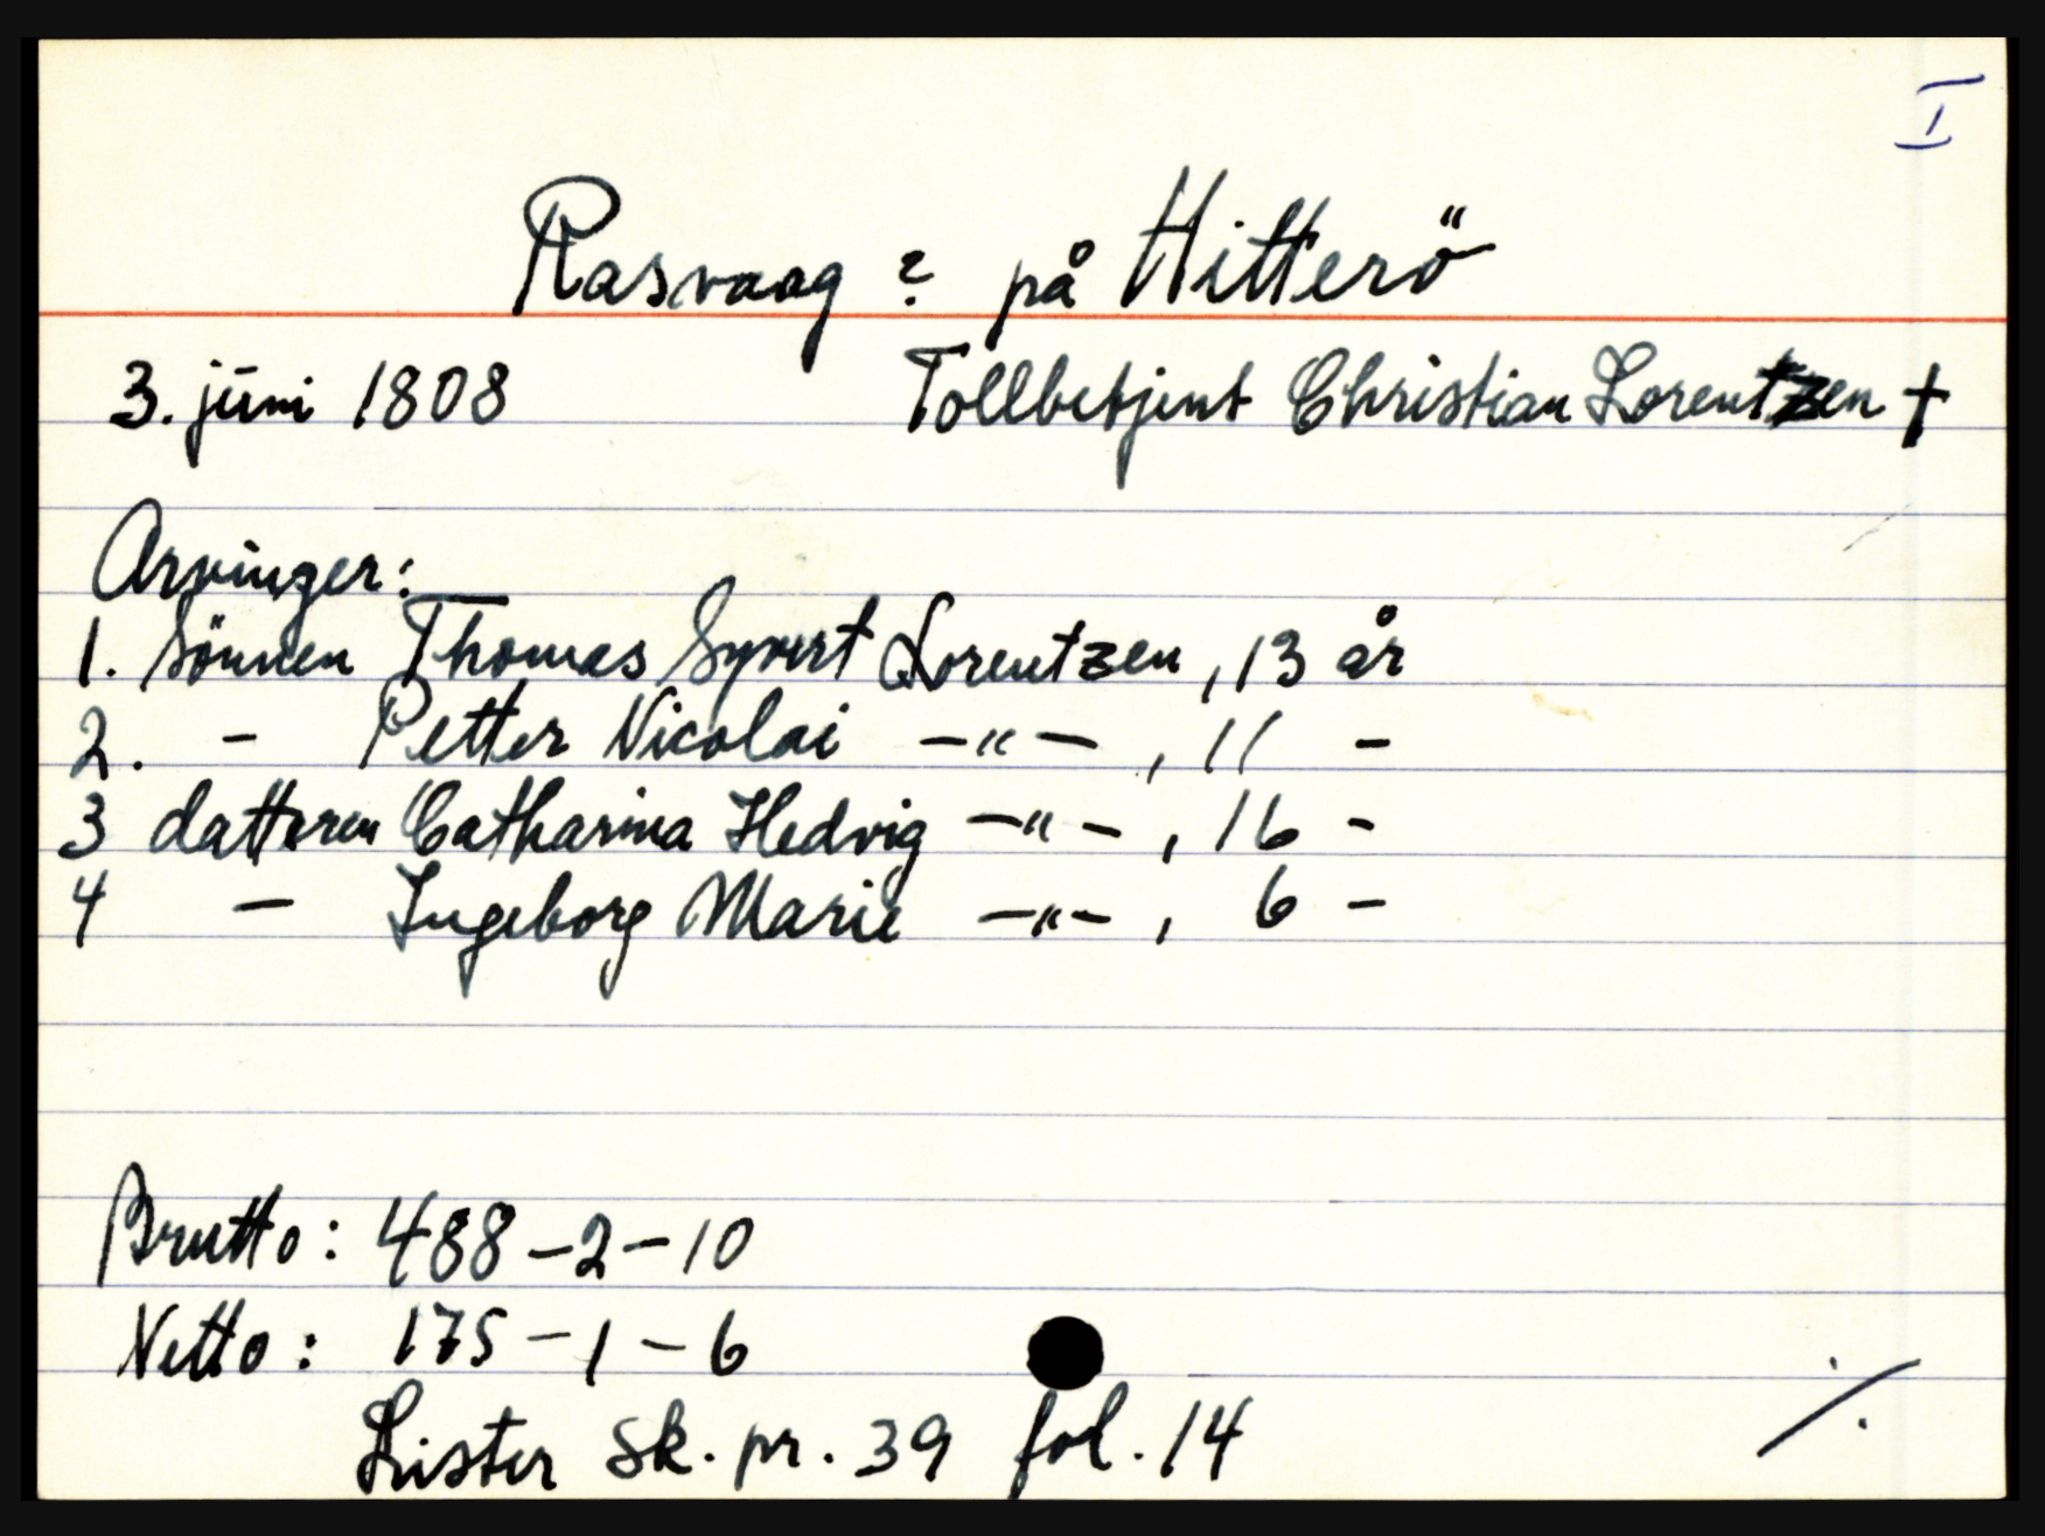 I
Rasvaag ? på Hitterö
3. juni 1808 Tollbetjent Christian Lorentzen †
Arvinger:
1. Sönnen Thomas Syvert Lorentzen, 13 år
2. - Petter Nicolai -"-, 11 -
3 datteren Catharina Hedvig -"-, 16 -
4 - Ingeborg Marie -"-, 6 -
Brutto: 488-2-10
Netto: 175-1-6
Lister Sk. pr. 39 fol. 14 ./.